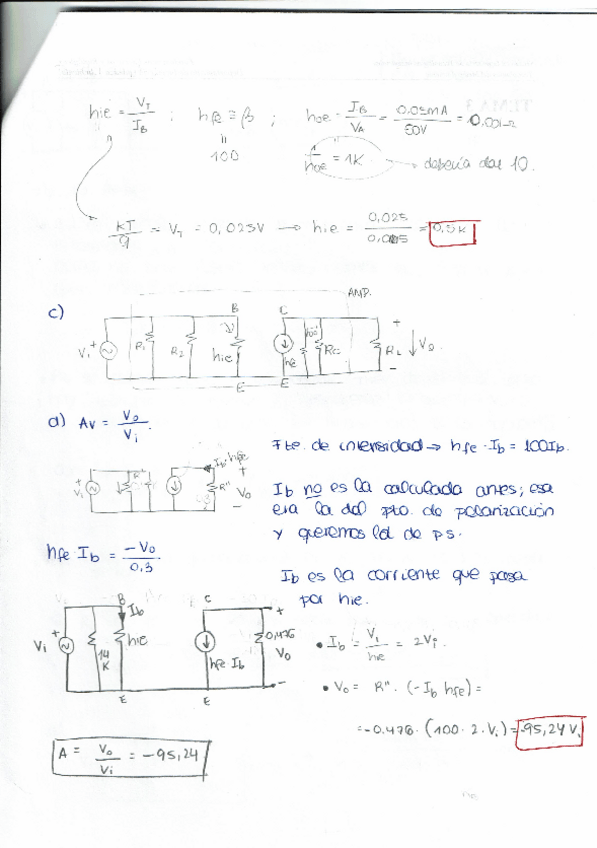 hie = VT/IB ; hfe ≡ β ; hoe = IB/VA = 0.05mA/50V = 0.001
"
100
1/hoe = 1K → debería dar 10.
KT/q = VT = 0,025V → hie = 0,025/0,005 = 0,5K
AMP.
c)
B C
Vi + R1 R2 hie hfe RC RL + Vo -
E E
d) Av = Vo/Vi
Fte. de intensidad → hfe · Ib = 100Ib.
Ib hfe
Vi + R' R" + Vo -
Ib no es la calculada antes; esa
era la del pto. de polarización
y queremos la de p.s.
hfe Ib = -Vo/0,3
Ib es la corriente que pasa
por hie.
B Ib C +
Vi + 14K hie hfe Ib 0,476 Vo -
E E
• Ib = Vi/hie = 2Vi
• Vo = R" · (-Ib hfe) =
= -0.476 · (100 · 2 · Vi) = -95,24 Vi
A = Vo/Vi = -95,24